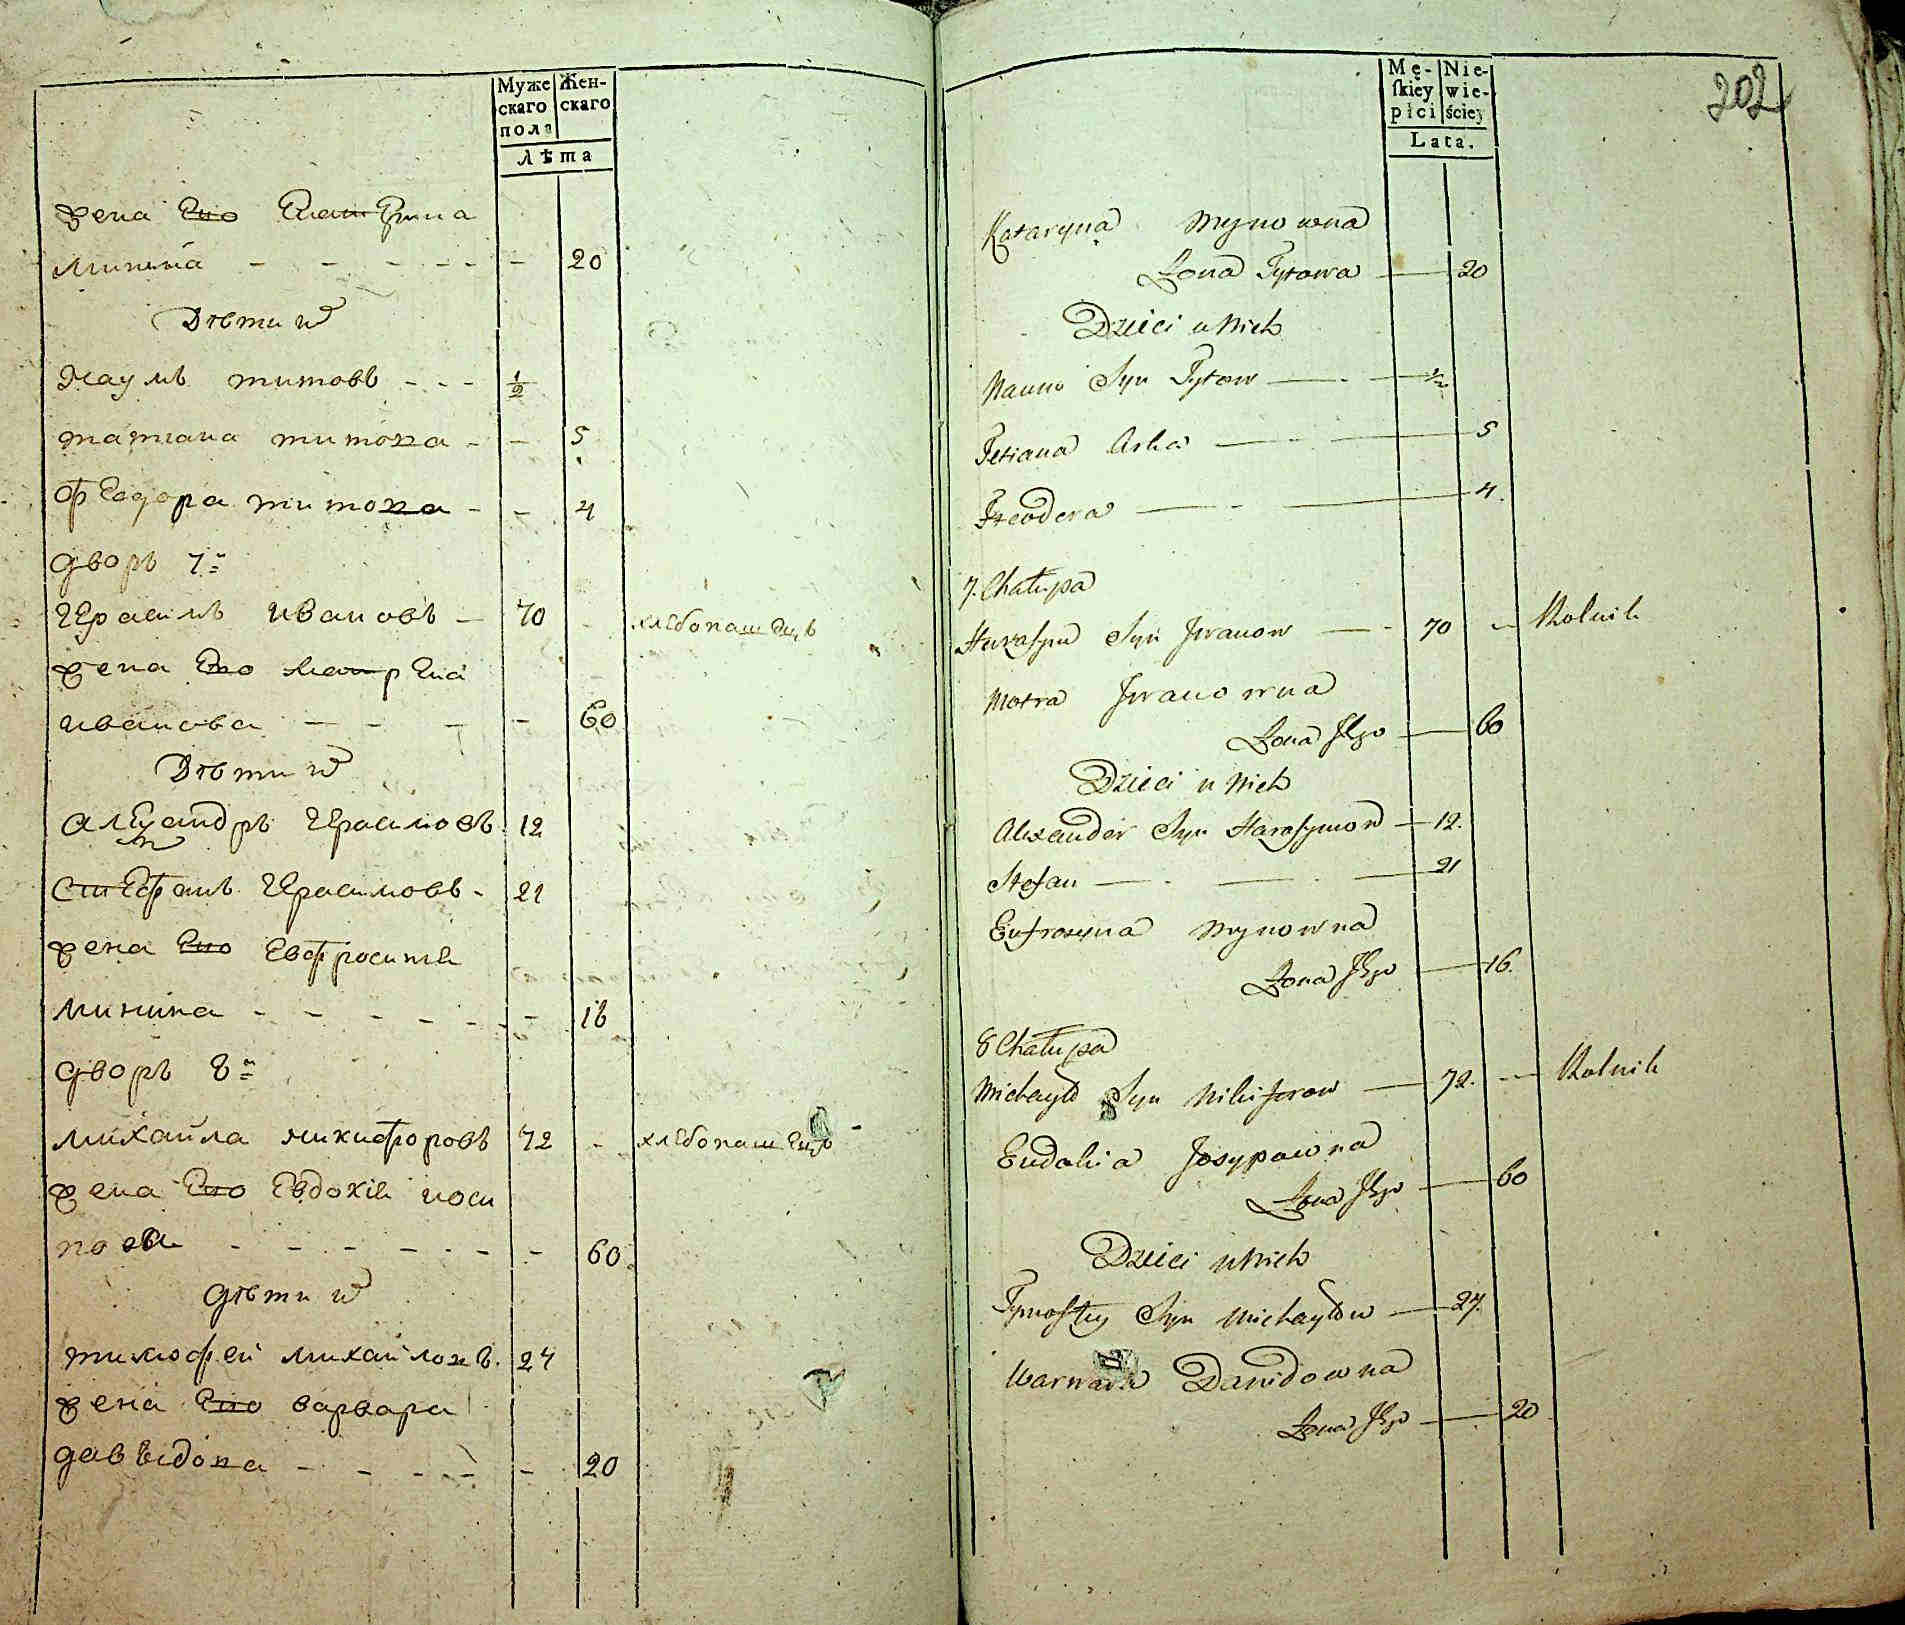 Муже Жен-
скаго скаго
пола
лѣта
жена Его Екатерина
минина - - - - - - 20
Дѣти ихъ
Наумъ титовъ - - - ½
татиана титова - - 5
феодора титова - - 4
дворъ 7й
Герасимъ ивановъ - 70 - хлебопашецъ
жена Его матрена
иванова - - - - 60
Дѣти ихъ
алеѯандръ Герасимовъ 12
Стефанъ Герасимовъ - 21
жена Его Евфросиния
минина - - - - - - 16
дворъ 8й
михайла никифоровъ 72 - хлебопашецъ
жена Его Евдокия иоси
пова - - - - - - - 60
дѣти ихъ
тимофей михайловъ. 24
жена Его варвара
давыдова - - - - - 20
202
Mę- Nie-
ſkiey wie-
płci ściey
Lata.
Kataryna Mynowna
Zona Tytowa — 20
Dzieci u Nich
Naum Syn Tytow — ½
Tetiana Corka — 5
Teodora — 4.
7. Chałupa
Harasym Syn Jwanow — 70 - Rolnik
Motra Jwanowna
Zona Jego — 60
Dzieci u Nich
Alexander Syn Harasymow — 12.
Stefan — 21
Eufrozyna Mynowna
Zona Jego — 16.
8 Chałupa
Michayło Syn Nikiforow — 72. — Rolnik
Eudokia Josypowna
Zona Jego — 60
Dzieci u Nich
Tymofiey Syn Michayłow — 24.
Warwara Dawidowna
Zona Jego — 20